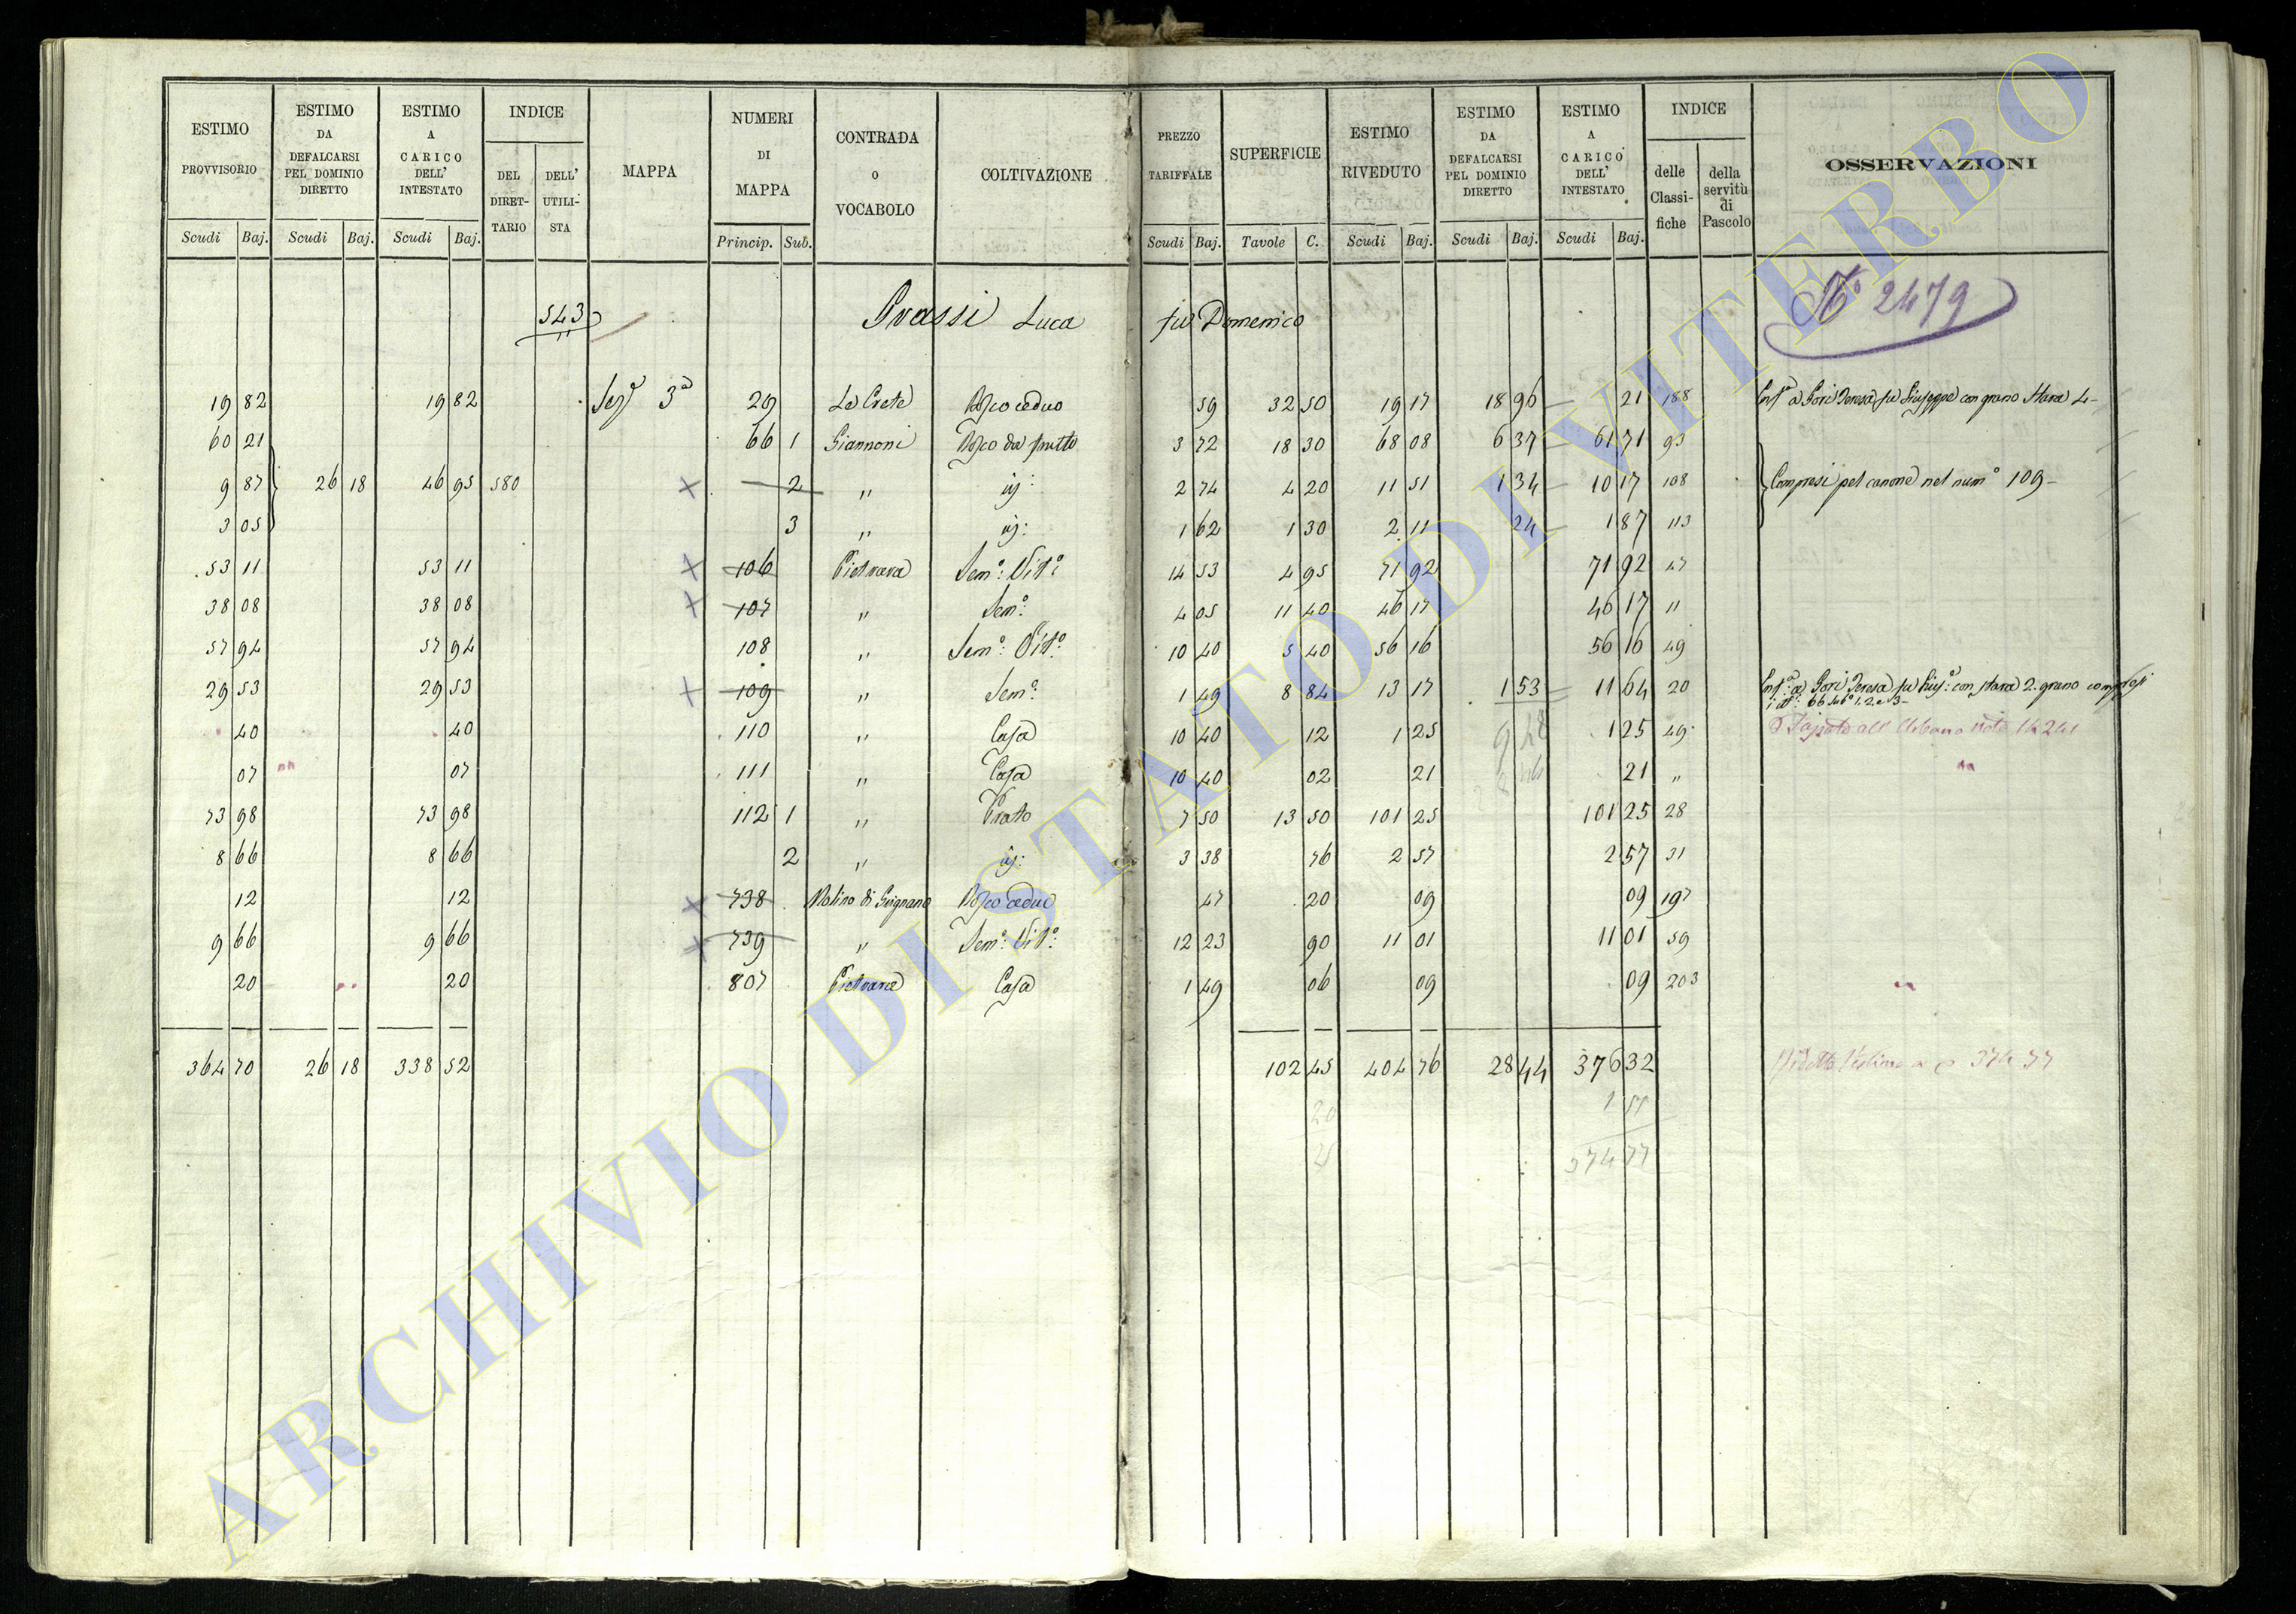 ESTIMO PROVVISORIO | ESTIMO DA DEFALCARSI PEL DOMINIO DIRETTO | ESTIMO A CARICO DELL' INTESTATO | INDICE | MAPPA | NUMERI DI MAPPA | CONTRADA O VOCABOLO | COLTIVAZIONE | PREZZO TARIFFALE | SUPERFICIE | ESTIMO RIVEDUTO | ESTIMO DA DEFALCARSI PEL DOMINIO DIRETTO | ESTIMO A CARICO DELL' INTESTATO | INDICE | OSSERVAZIONI
DEL DIRET-TARIO | DELL' UTILI-STA | delle Classi-fiche | della servitù di Pascolo
Scudi Baj. | Scudi Baj. | Scudi Baj. | Princip. Sub. | Scudi Baj. | Tavole C. | Scudi Baj. | Scudi Baj. | Scudi Baj.
N° 2479
543 Grassi Luca fu Domenico
19 82 | 19 82 | Sez.e 3a | 29 | Le Crete | Bosco ceduo | 59 | 32 50 | 19 17 | 18 96 | 21 | 188 | Enf.a a Gori Teresa fu Giuseppe con grano Stara 4
60 21 | 66 1 | Giannoni | Bosco da frutto | 3 72 | 18 30 | 68 08 | 6 37 | 61 71 | 93
9 87 | 26 18 | 46 95 | 580 | × | 2 | " | id: | 2 74 | 4 20 | 11 51 | 1 34 | 10 17 | 108 | Compresi pel canone nel num° 109
3 05 | 3 | " | id: | 1 62 | 1 30 | 2 11 | 24 | 1 87 | 113
53 11 | 53 11 | × | 106 | Pietrara | Sem°: Vit°: | 14 53 | 4 95 | 71 92 | 71 92 | 47
38 08 | 38 08 | × | 107 | " | Sem°: | 4 05 | 11 40 | 46 17 | 46 17 | 11
57 94 | 57 94 | 108 | " | Sem°: Vit°: | 10 40 | 5 40 | 56 16 | 56 16 | 49
29 53 | 29 53 | × | 109 | " | Sem°: | 1 49 | 8 84 | 13 17 | 1 53 | 11 64 | 20 | Enf.a a Gori Teresa fu Gius°: con stara 2. grano compresi
66 sub° 1. 2. e 3
40 | 40 | 110 | " | Casa | 10 40 | 12 | 1 25 | 9 48 | 1 25 | 49
07 | 07 | 111 | " | Casa | 10 40 | 02 | 21 | 21 | "
73 98 | 73 98 | 112 1 | " | Prato | 7 50 | 13 50 | 101 25 | 101 25 | 28
8 66 | 8 66 | 2 | " | id: | 3 38 | 76 | 2 57 | 2 57 | 31
12 | 12 | × | 738 | Molino di Grignano | Bosco ceduo | 47 | 20 | 09 | 09 | 197
9 66 | 9 66 | × | 739 | " | Sem°: Vit°: | 12 23 | 90 | 11 01 | 11 01 | 59
20 | 20 | 807 | Pietrara | Casa | 1 49 | 06 | 09 | 09 | 203
364 70 | 26 18 | 338 52 | 102 45 | 404 76 | 28 44 | 376 32 | 374 77
20 | 1 55
374 77
ARCHIVIO DI STATO DI VITERBO